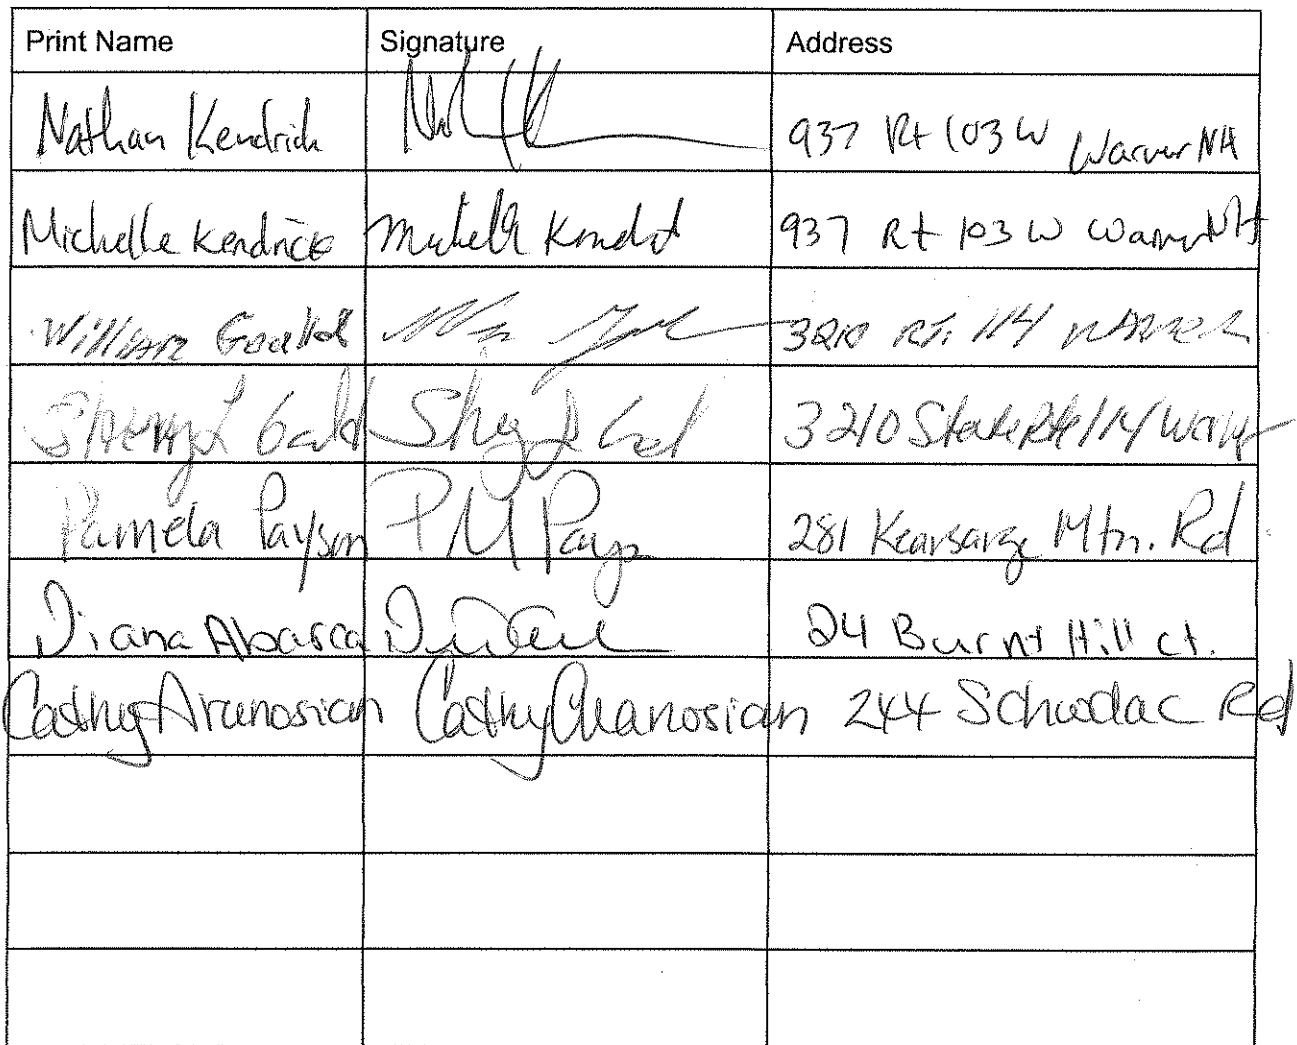 Print Name Signature Address
Nathan Kendrick 937 Rt 103 W Warner NH
Michelle Kendrick Michelle Kendrick 937 Rt 103 W Warner NH
William 3210 RT. 114 WARNER
Sheryl 3210 State Rte 114 Warner
Pamela Payson P M Pays 281 Kearsarge Mtn. Rd
Diana Abasca 24 Burnt Hill ct.
Cathy Aranosian Cathy Aranosian 244 Schoodac Rd